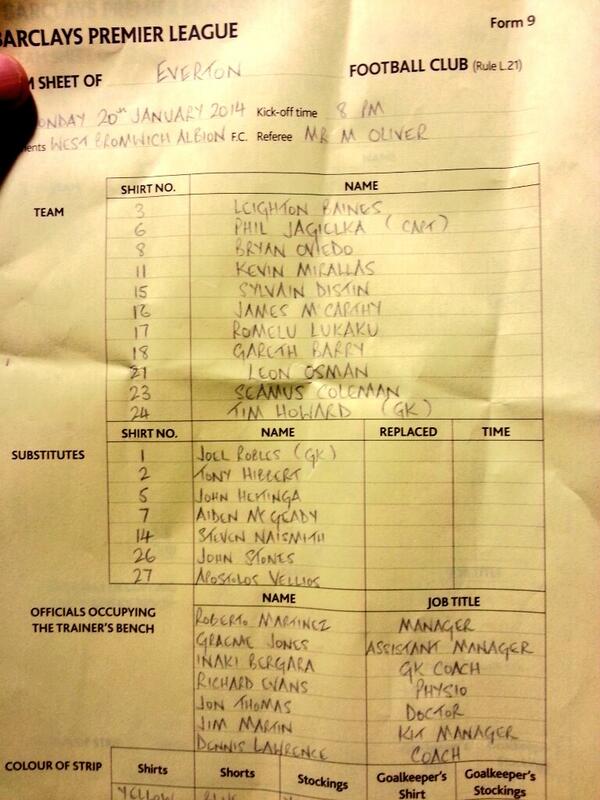 BARCLAYS PREMIER LEAGUE
Form 9
M SHEET OF EVERTON FOOTBALL CLUB (Rule L.21)
ONDAY 20th JANUARY 2014 Kick-off time 8 PM
ents WEST BROMWICH ALBION F.C. Referee MR M OLIVER
SHIRT NO. NAME
TEAM
3 LEIGHTON BAINES
6 PHIL JAGIELKA (CAPT)
8 BRYAN OVIEDO
11 KEVIN MIRALLAS
15 SYLVAIN DISTIN
16 JAMES McCARTHY
17 ROMELU LUKAKU
18 GARETH BARRY
21 LEON OSMAN
23 SEAMUS COLEMAN
24 TIM HOWARD (GK)
SHIRT NO. NAME REPLACED TIME
SUBSTITUTES
1 JOEL ROBLES (GK)
2 TONY HIBBERT
5 JOHN HEITINGA
7 AIDEN McGEADY
14 STEVEN NAISMITH
26 JOHN STONES
27 APOSTOLOS VELLIOS
NAME JOB TITLE
OFFICIALS OCCUPYING
THE TRAINER'S BENCH
ROBERTO MARTINEZ MANAGER
GRAEME JONES ASSISTANT MANAGER
INAKI BERGARA GK COACH
RICHARD EVANS PHYSIO
JON THOMAS DOCTOR
JIM MARTIN KIT MANAGER
DENNIS LAWRENCE COACH
COLOUR OF STRIP Shirts Shorts Stockings Goalkeeper's Shirt Goalkeeper's Stockings
YELLOW BLUE